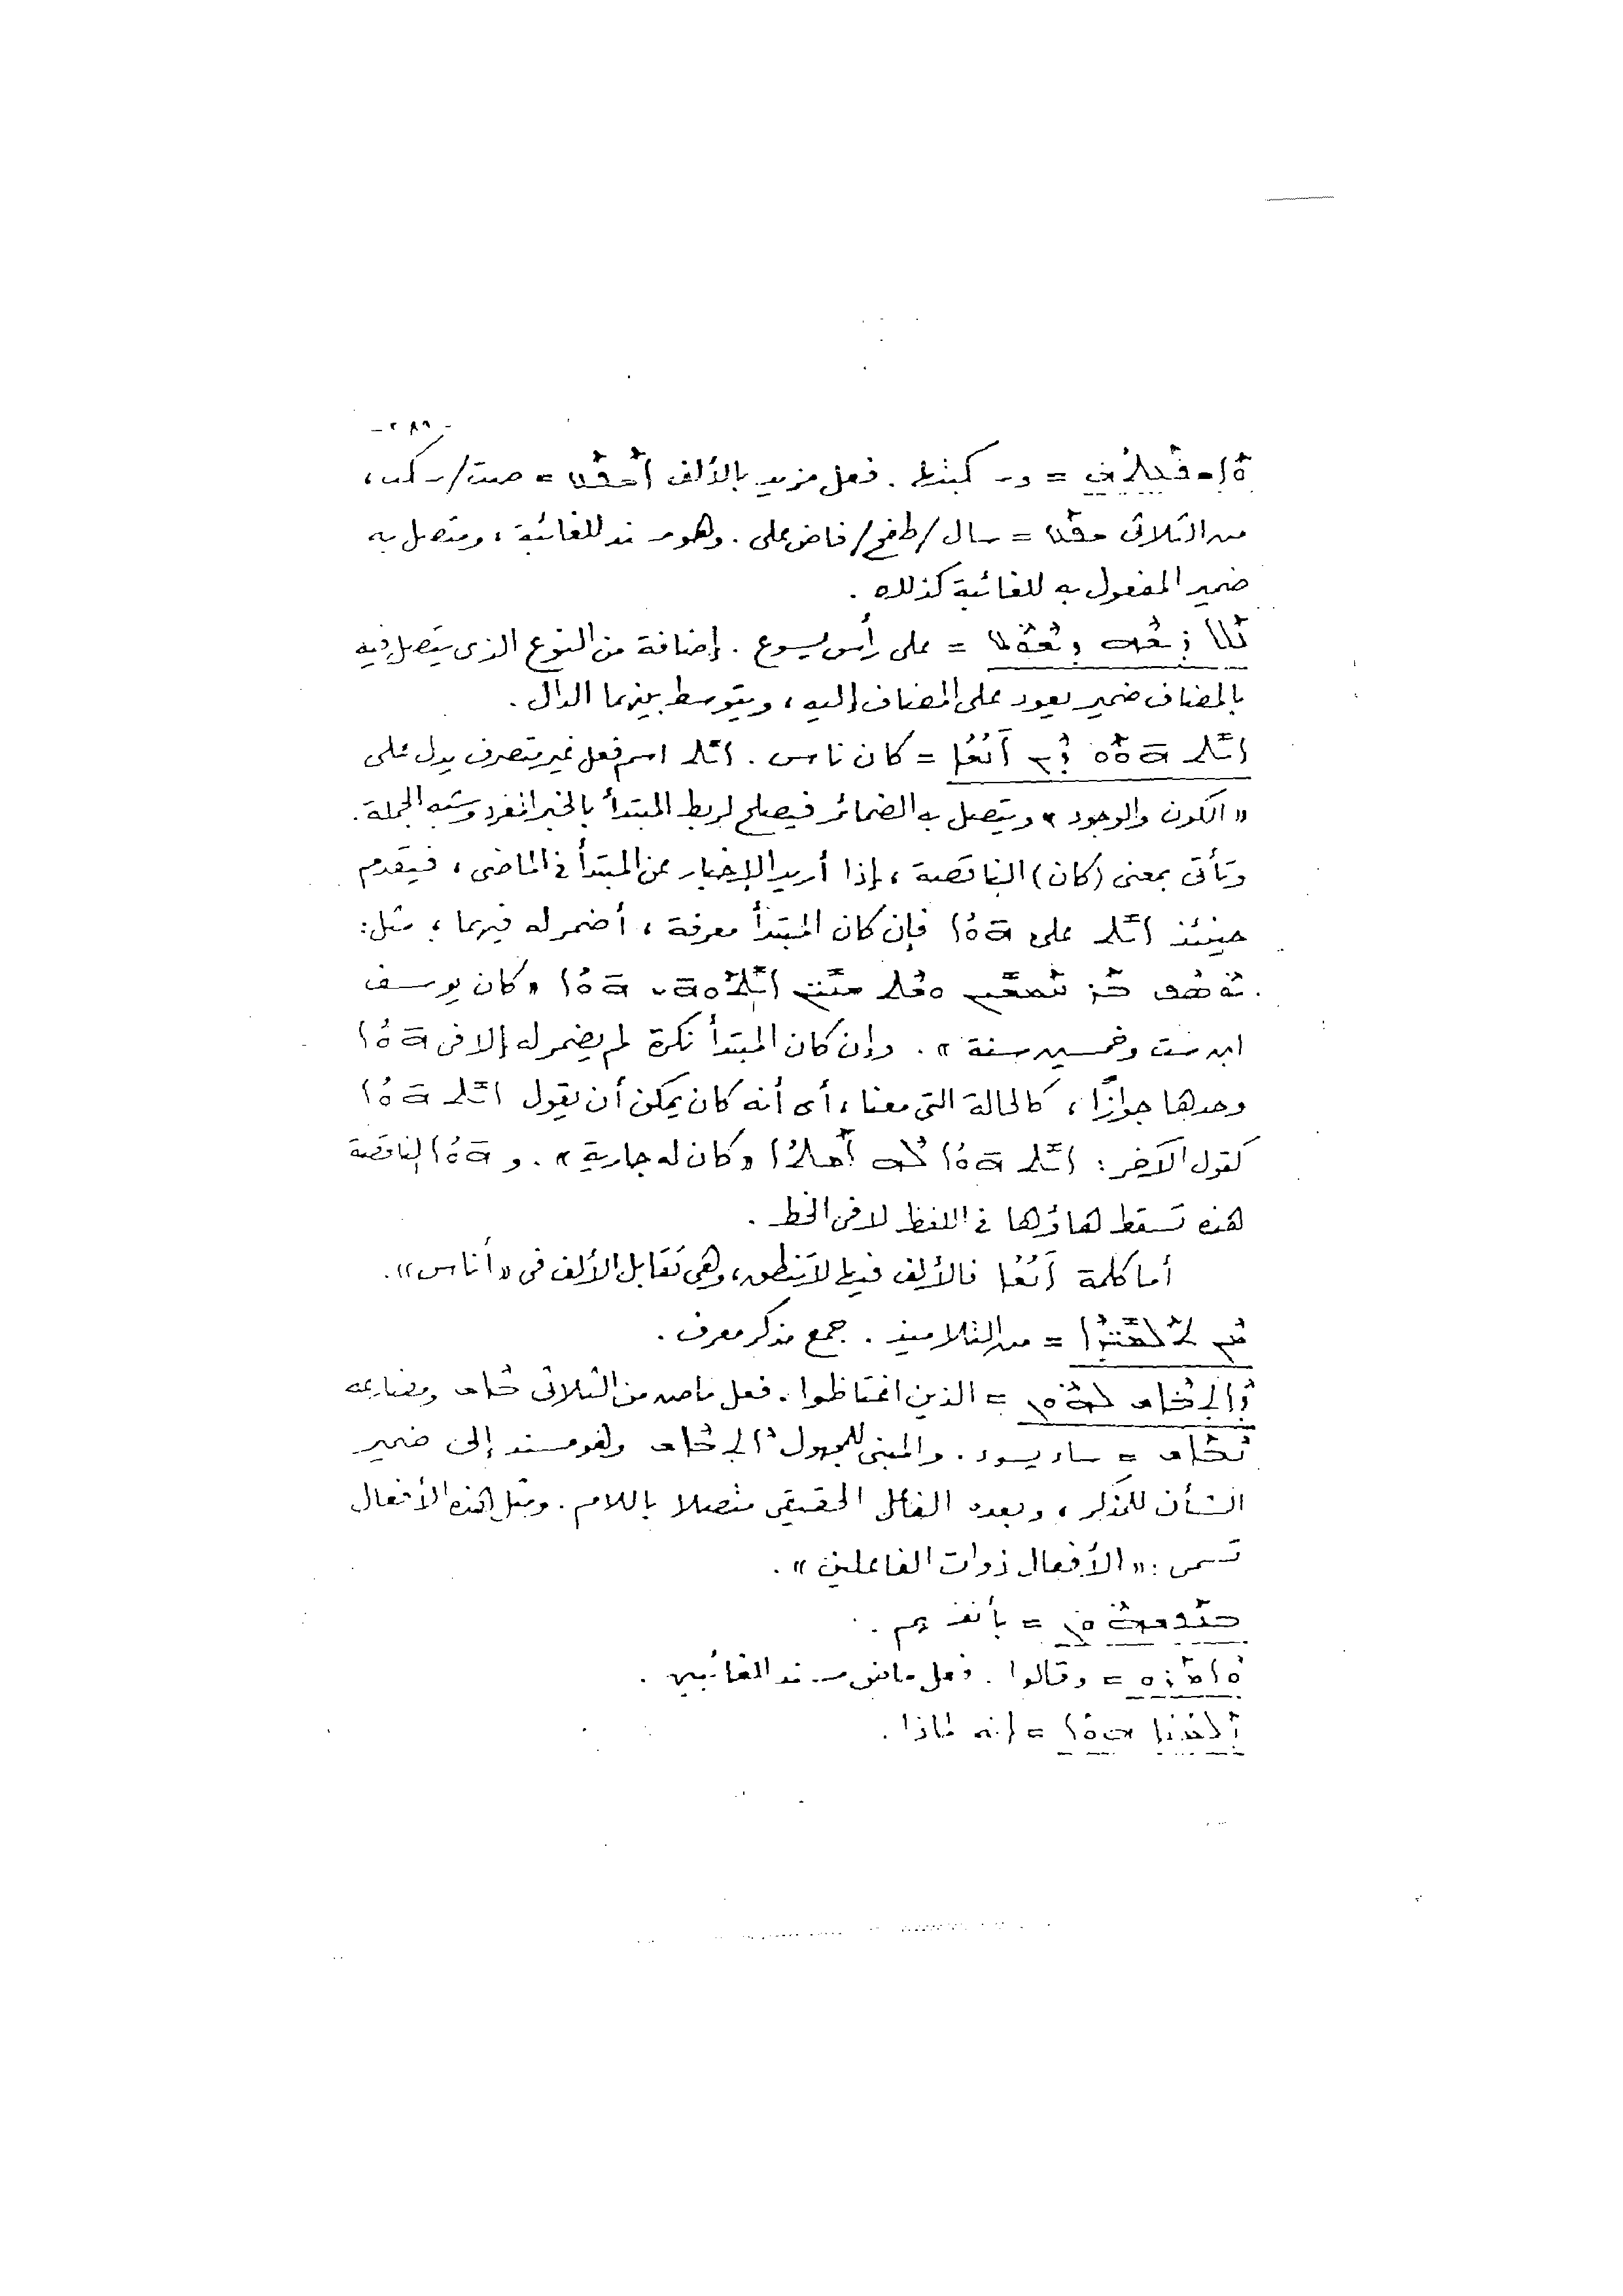 - ٢٨٩ -
ܘܐܫܦܥܬܗ = وسكبتها . فعل مزيد بالألف ܐܫܦܥ = صبّ/سكب ،
من الثلاثى ܫܦܥ = سال/طفح/فاض على . وهو مسند للغائبة ، ويتصل به
ضمير المفعول به للغائبة كذلك .
ܥܠ ܪܝܫܗ ܕܝܫܘܥ = على رأس يسوع . إضافة من النوع الذى يتصل فيه
بالمضاف ضمير يعود على المضاف إليه ، ويتوسط بينهما الدال .
ܐܝܬ ܗܘܘ ܕܝܢ ܐܢܫܐ = كان ناس . ܐܝܬ اسم فعل غير متصرف يدل على
« الكون والوجود » ويتصل به الضمائر فيصلح لربط المبتدأ بالخبر المفرد وشبه الجملة .
وتأتى بمعنى (كان) الناقصة ، إذا أريد الإخبار عن المبتدأ فى الماضى ، فيتقدم
حينئذ ܐܝܬ على ܗܘܐ فإن كان المبتدأ معرفة ، أضمر له فيهما ، مثل :
ܝܘܣܦ ܒܪ ܚܡܫܝܢ ܘܫܬ ܫܢܝܢ ܐܝܬܘܗܝ ܗܘܐ « كان يوسف
ابن ست وخمسين سنة » . وإن كان المبتدأ نكرة لم يضمر له إلا فى ܗܘܐ
وحدها جوازًا ، كالحالة التى معنا ، أى أنه كان يمكن أن يقول ܐܝܬ ܗܘܐ
كقول الآخر : ܐܝܬ ܗܘܐ ܠܗ ܐܡܬܐ « كان له جارية » . و ܗܘܐ الناقصة
هذه تسقط هاؤها فى اللفظ لا فى الخط .
أما كلمة ܐܢܫܐ فالألف فيها لا تنطق ، وهى تقابل الألف فى « أناس » .
ܡܢ ܬܠܡܝܕܐ = من التلاميذ . جمع مذكر معرف .
ܕܐܬܒܐܫ ܠܗܘܢ = الذين اغتاظوا . فعل ماض من الثلاثى ܒܐܫ ومضارعه
ܢܒܐܫ = ساء يسوء . والمبنى للمجهول ܐܬܒܐܫ وهو مسند إلى ضمير
الشأن للمذكر ، وبعده الفاعل الحقيقى متصلا باللام . ومثل هذه الأفعال
تسمى : « الأفعال ذوات الفاعلين » .
ܒܢܦܫܗܘܢ = بأنفسهم .
ܘܐܡܪܘ = وقالوا . فعل ماض مسند للغائبين .
ܐܒܕܢܐ ܗܢܐ = إنه لماذا .